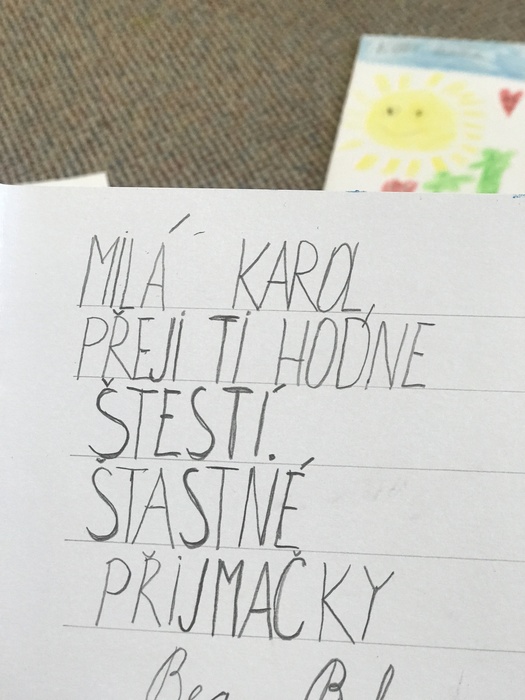 MILÁ KAROL,
PŘEJI TI HODNE
ŠTESTÍ.
ŠTASTNÉ
PŘIJMAČKY